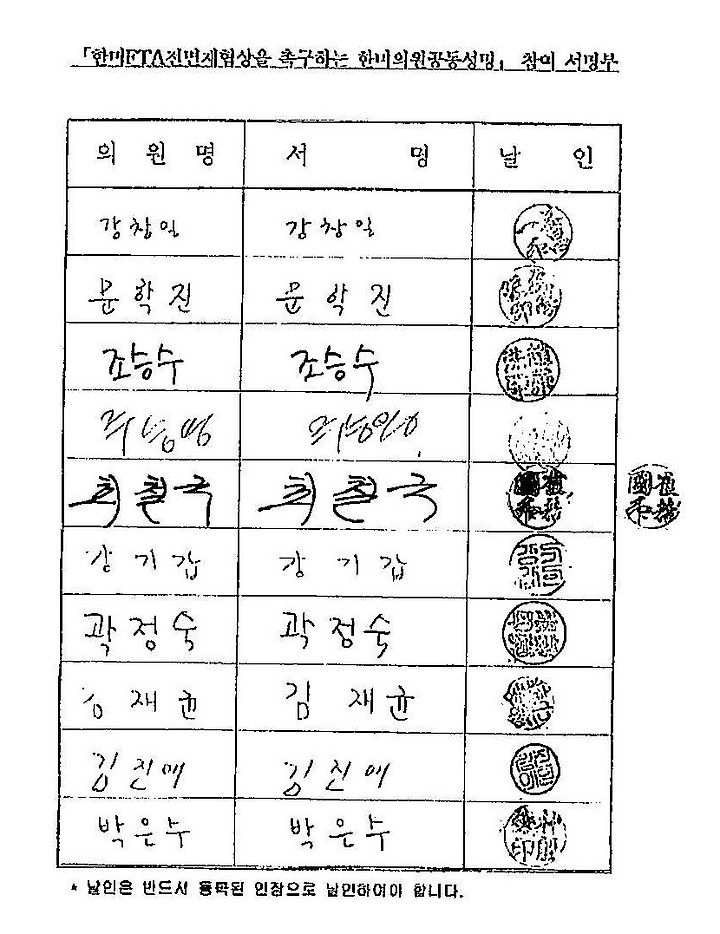 「한미FTA전면재협상을 촉구하는 한미의원공동성명」 참여 서명부
의 원 명 서 명 날 인
강창일 강창일
문학진 문학진
조승수 조승수
최철국 최철국
강기갑 강기갑
곽정숙 곽정숙
김재균 김재균
김진애 김진애
박은수 박은수
* 날인은 반드시 등록된 인장으로 날인하여야 합니다.